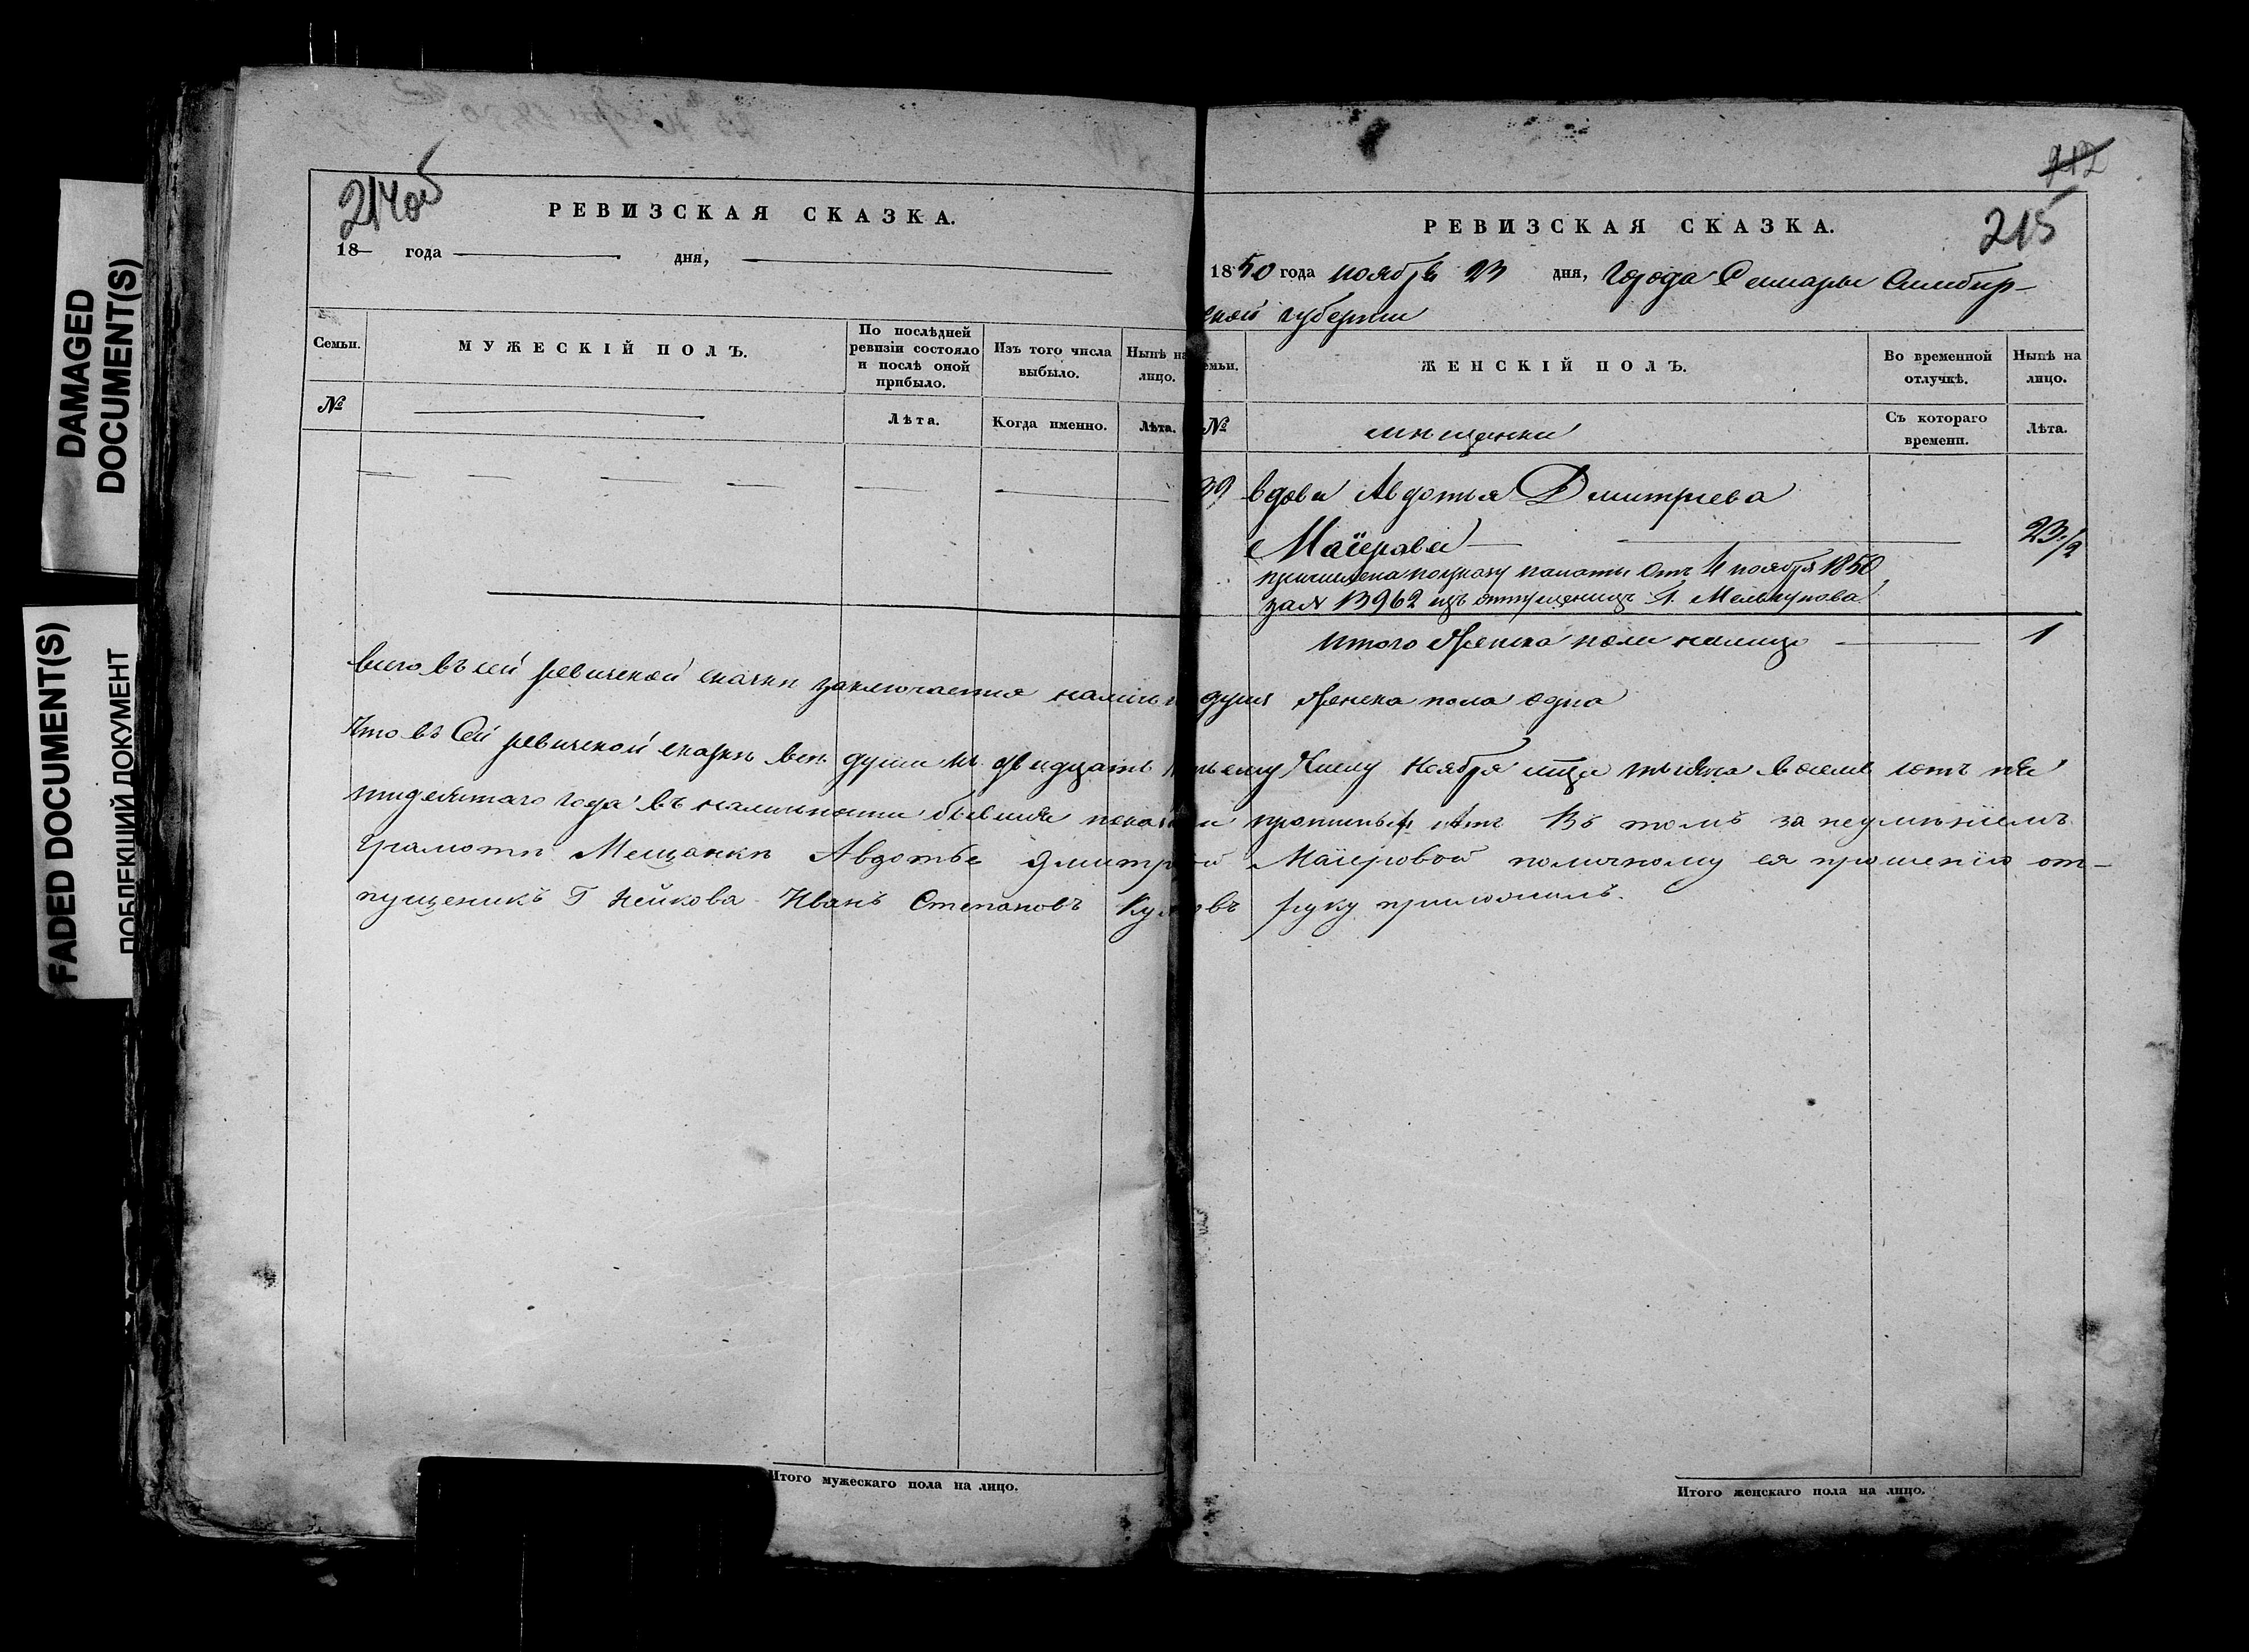 DAMAGED
DOCUMENT(S)
FADED DOCUMENT(S)
ПОБЛЕКШИЙ ДОКУМЕНТ
214об
РЕВИЗСКАЯ СКАЗКА.
18 года дня,
Семьи.
МУЖЕСКІЙ ПОЛЪ.
По послѣдней
ревизіи состояло
и послѣ оной
прибыло.
Изъ того числа
выбыло.
Нынѣ на
лицо.
№
Лѣта.
Когда именно.
Лѣта.
212
215
РЕВИЗСКАЯ СКАЗКА.
1850 года ноября 23 дня, Города Самары Симбир-
ской губернии
емьи.
ЖЕНСКІЙ ПОЛЪ.
Во временной
отлучкѣ.
Нынѣ на
лицо.
№
мѣщанки
Съ котораго
времени.
Лѣта.
39 вдова Авдотья Дмитриева
Маіерова 23 1/2
причислена по указу палаты отъ 4 ноября 1850
за № 13962 изъ отпущеницъ Г. Мельгунова
итого женска пола налицо 1
всего въ сей ревизской сказки заключается налицо душа женска пола одна
Что въ Сей ревизской сказкѣ всѣ души къ двадцать третьему Числу Ноября мца тысяча восемь сотъ пя
тидесятаго года въ наличности бывшия показаны Въ томъ за неумѣніемъ
грамоты Мещанки Авдотье Дмитр ой Маіеровой поличному ея прошенію от-
пущеникъ Г Нейкова Иванъ Степановъ руку приложилъ.
Итого мужескаго пола на лицо.
Итого женскаго пола на лицо.